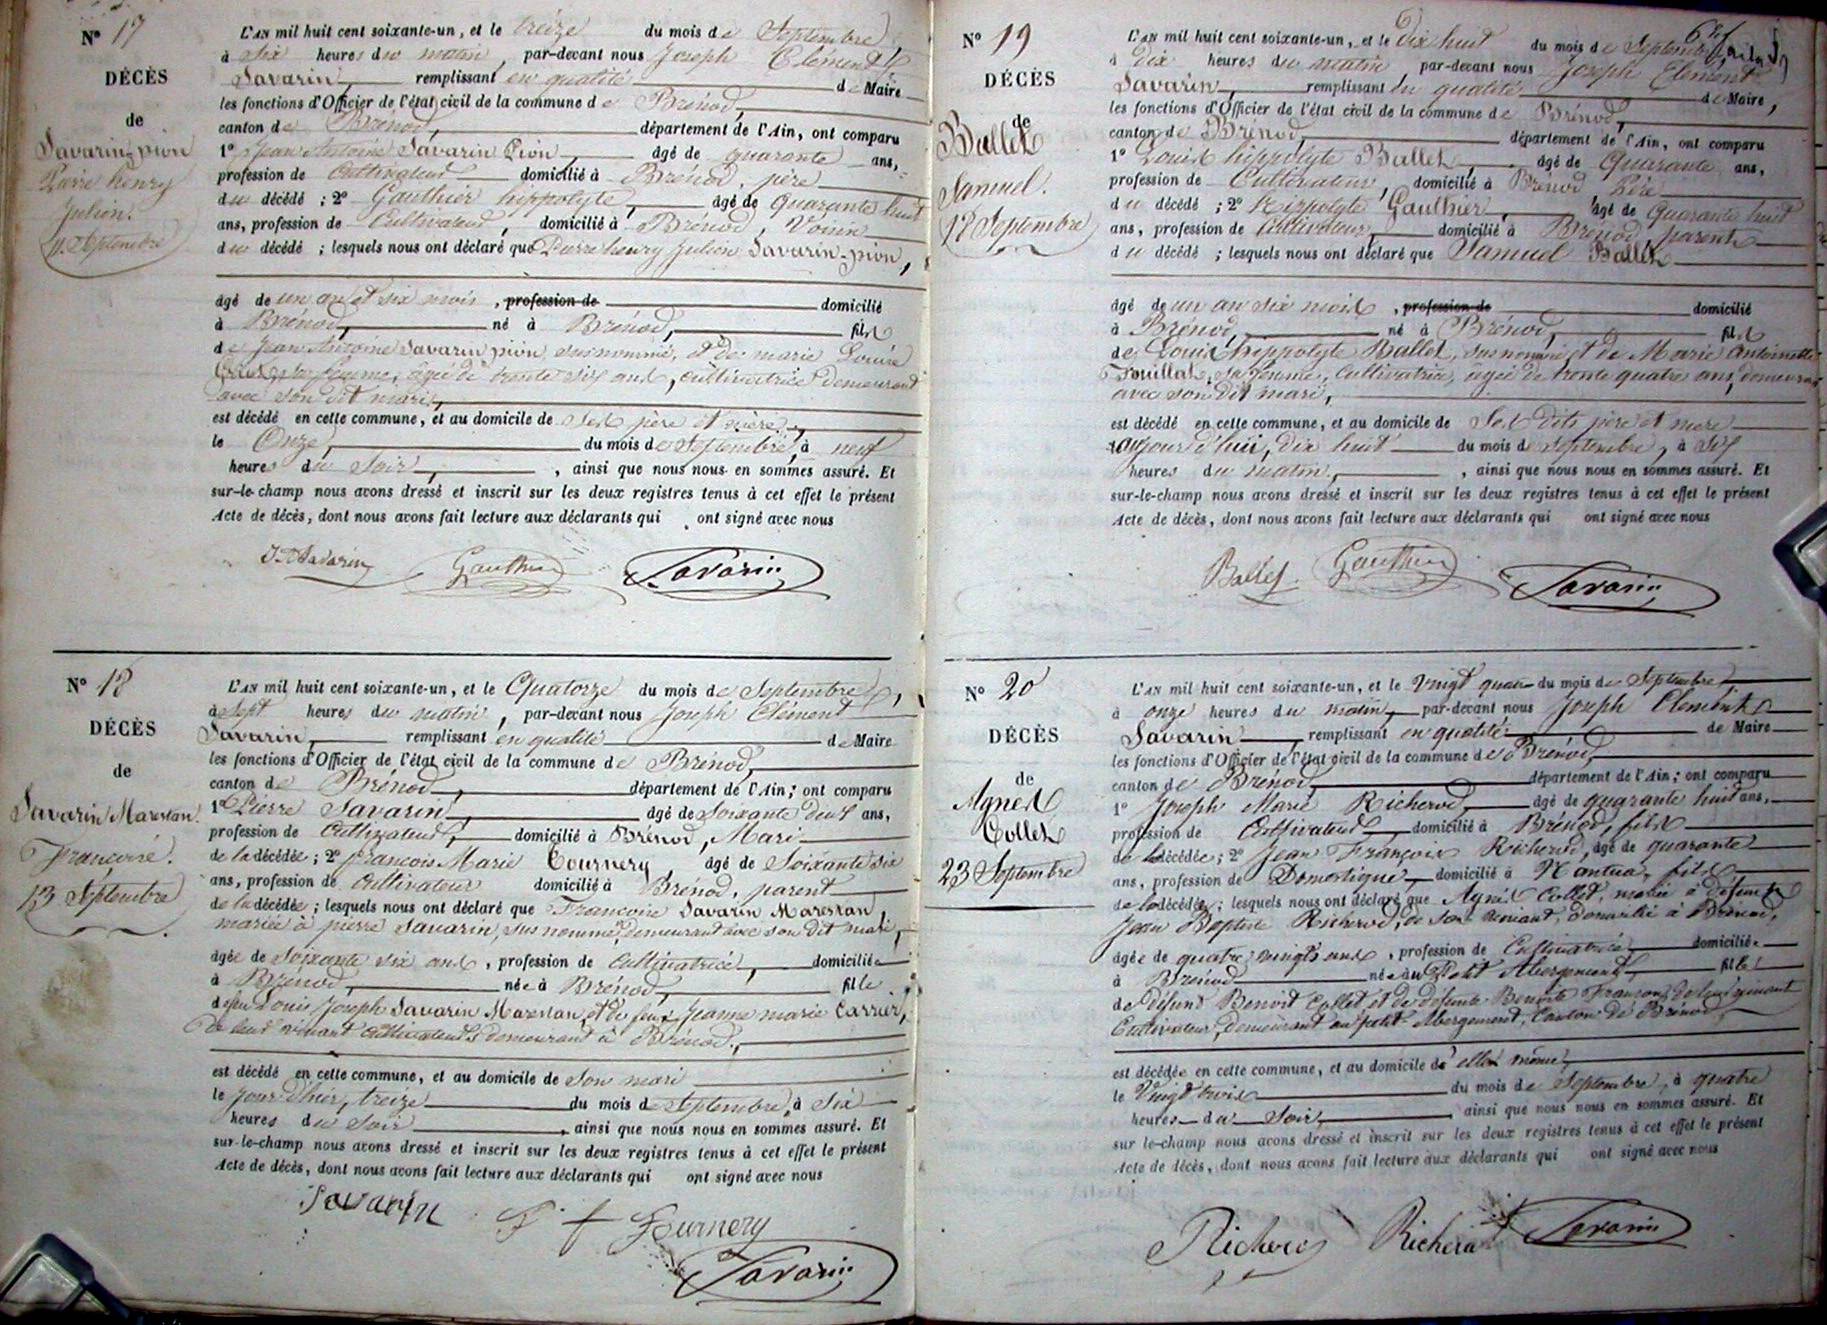 N° 17
DÉCÈS
de
Savarin-pion
Pierre henry
Julien.
11. Septembre
L'AN mil huit cent soixante-un, et le treize du mois de Septembre
à Six heures du matin, par-devant nous Joseph Clément
Savarin, remplissant en qualité de Maire
les fonctions d'Officier de l'état civil de la commune de Brénod,
canton de Brénod, département de l'Ain, ont comparu
1° Jean Antoine Savarin Pion, âgé de quarante ans,
profession de Cultivateur domicilié à Brénod, père
du décédé ; 2° Gauthier hippolyte, âgé de quarante huit
ans, profession de Cultivateur, domicilié à Brénod, Voisin
du décédé ; lesquels nous ont déclaré que Pierre henry Julien Savarin-pion,
âgé de un an et six mois, profession de domicilié
à Brénod, né à Brénod, fils
de Jean Antoine Savarin pion, susnommé, et de marie Louise
sa femme, âgée de trente six ans, cultivatrice demeurant
avec son dit mari,
est décédé en cette commune, et au domicile de Ses père et mère,
le Onze, du mois de Septembre, à neuf
heures du Soir, , ainsi que nous nous en sommes assuré. Et
sur-le-champ nous avons dressé et inscrit sur les deux registres tenus à cet effet le présent
Acte de décès, dont nous avons fait lecture aux déclarants qui ont signé avec nous
J. A Savarin Gauthier Savarin
N° 18
DÉCÈS
de
Savarin Marestan.
Françoise.
13 Septembre
L'AN mil huit cent soixante-un, et le Quatorze du mois de Septembre,
à Sept heures du matin, par-devant nous Joseph Clément
Savarin, remplissant en qualité de Maire
les fonctions d'Officier de l'état civil de la commune de Brénod,
canton de Brénod, département de l'Ain ; ont comparu
1° Pierre Savarin, âgé de Soixante deux ans,
profession de Cultivateur, domicilié à Brénod, Mari
de la décédée ; 2° françois Marie Tournery âgé de Soixante six
ans, profession de cultivateur domicilié à Brénod, parent
de la décédée ; lesquels nous ont déclaré que Françoise Savarin Marestan,
mariée à pierre Savarin, sus nommé, demeurant avec son dit mari,
âgée de soixante six ans, profession de Cultivatrice, domiciliée
à Brénod, née à Brénod, fille
de feu Louis Joseph Savarin Marestan, et de feue Jeanne marie Carrier,
de leur vivant cultivateurs demeurant à Brénod,
est décédé en cette commune, et au domicile de Son mari
le jour d'hier, treize du mois de Septembre, à Six
heures du Soir , ainsi que nous nous en sommes assuré. Et
sur-le-champ nous avons dressé et inscrit sur les deux registres tenus à cet effet le présent
Acte de décès, dont nous avons fait lecture aux déclarants qui ont signé avec nous
Savarin
Tournery
Savarin
N° 19
DÉCÈS
de
Ballet
Samuel.
18 Septembre
L'AN mil huit cent soixante-un, et le Dix huit du mois de Septembre
à dix heures du matin, par-devant nous Joseph Clément
Savarin, remplissant en qualité de Maire,
les fonctions d'Officier de l'état civil de la commune de Brénod,
canton de Brénod, département de l'Ain, ont comparu
1° Louis hippolyte Ballet, âgé de Quarante ans,
profession de Cultivateur, domicilié à Brénod Père
du décédé ; 2° Hippolyte Gauthier, âgé de Quarante huit
ans, profession de Cultivateur, domicilié à Brénod, parent
du décédé ; lesquels nous ont déclaré que Samuel Ballet
âgé de un an six mois, profession de domicilié
à Brénod, né à Brénod, fils
de Louis hippolyte Ballet, susnommé et de Marie Antoinette
Touillat, sa femme, Cultivatrice, âgée de trente quatre ans, demeurant
avec son dit mari,
est décédé en cette commune, et au domicile de Ses dits père et mère
aujour d'hui, dix huit du mois de Septembre, à Six
heures du matin, , ainsi que nous nous en sommes assuré. Et
sur-le-champ nous avons dressé et inscrit sur les deux registres tenus à cet effet le présent
Acte de décès, dont nous avons fait lecture aux déclarants qui ont signé avec nous
Ballet Gauthier Savarin
N° 20
DÉCÈS
de
Agnès
Collet
23 Septembre
L'AN mil huit cent soixante-un, et le Vingt quatre du mois de Septembre
à onze heures du matin, par-devant nous Joseph Clément
Savarin, remplissant en qualité de Maire
les fonctions d'Officier de l'état civil de la commune de Brénod,
canton de Brénod, département de l'Ain ; ont comparu
1° Joseph Marie Richerod, âgé de quarante huit ans,
profession de Cultivateur domicilié à Brénod, fils
de la décédée ; 2° Jean François Richerod, âgé de quarante
ans, profession de Domestique, domicilié à Nantua, fils
de la décédée ; lesquels nous ont déclaré que Agnès Collet, mariée à défunt
Jean Baptiste Richerod, de Son vivant, domicilié à Brénod,
âgée de quatre vingts ans, profession de Cultivatrice domiciliée
à Brénod née au Petit Abergement, fille
de défunt Benoit Collet et de défunte Benoite de leur vivant
Cultivateur, demeurant au petit-Abergement, Canton de Brénod,
est décédée en cette commune, et au domicile d'elle même,
le Vingt trois du mois de Septembre, à quatre
heures du Soir, ainsi que nous nous en sommes assuré. Et
sur le-champ nous avons dressé et inscrit sur les deux registres tenus à cet effet le présent
Acte de décès, dont nous avons fait lecture aux déclarants qui ont signé avec nous
Richerod Richerod Savarin